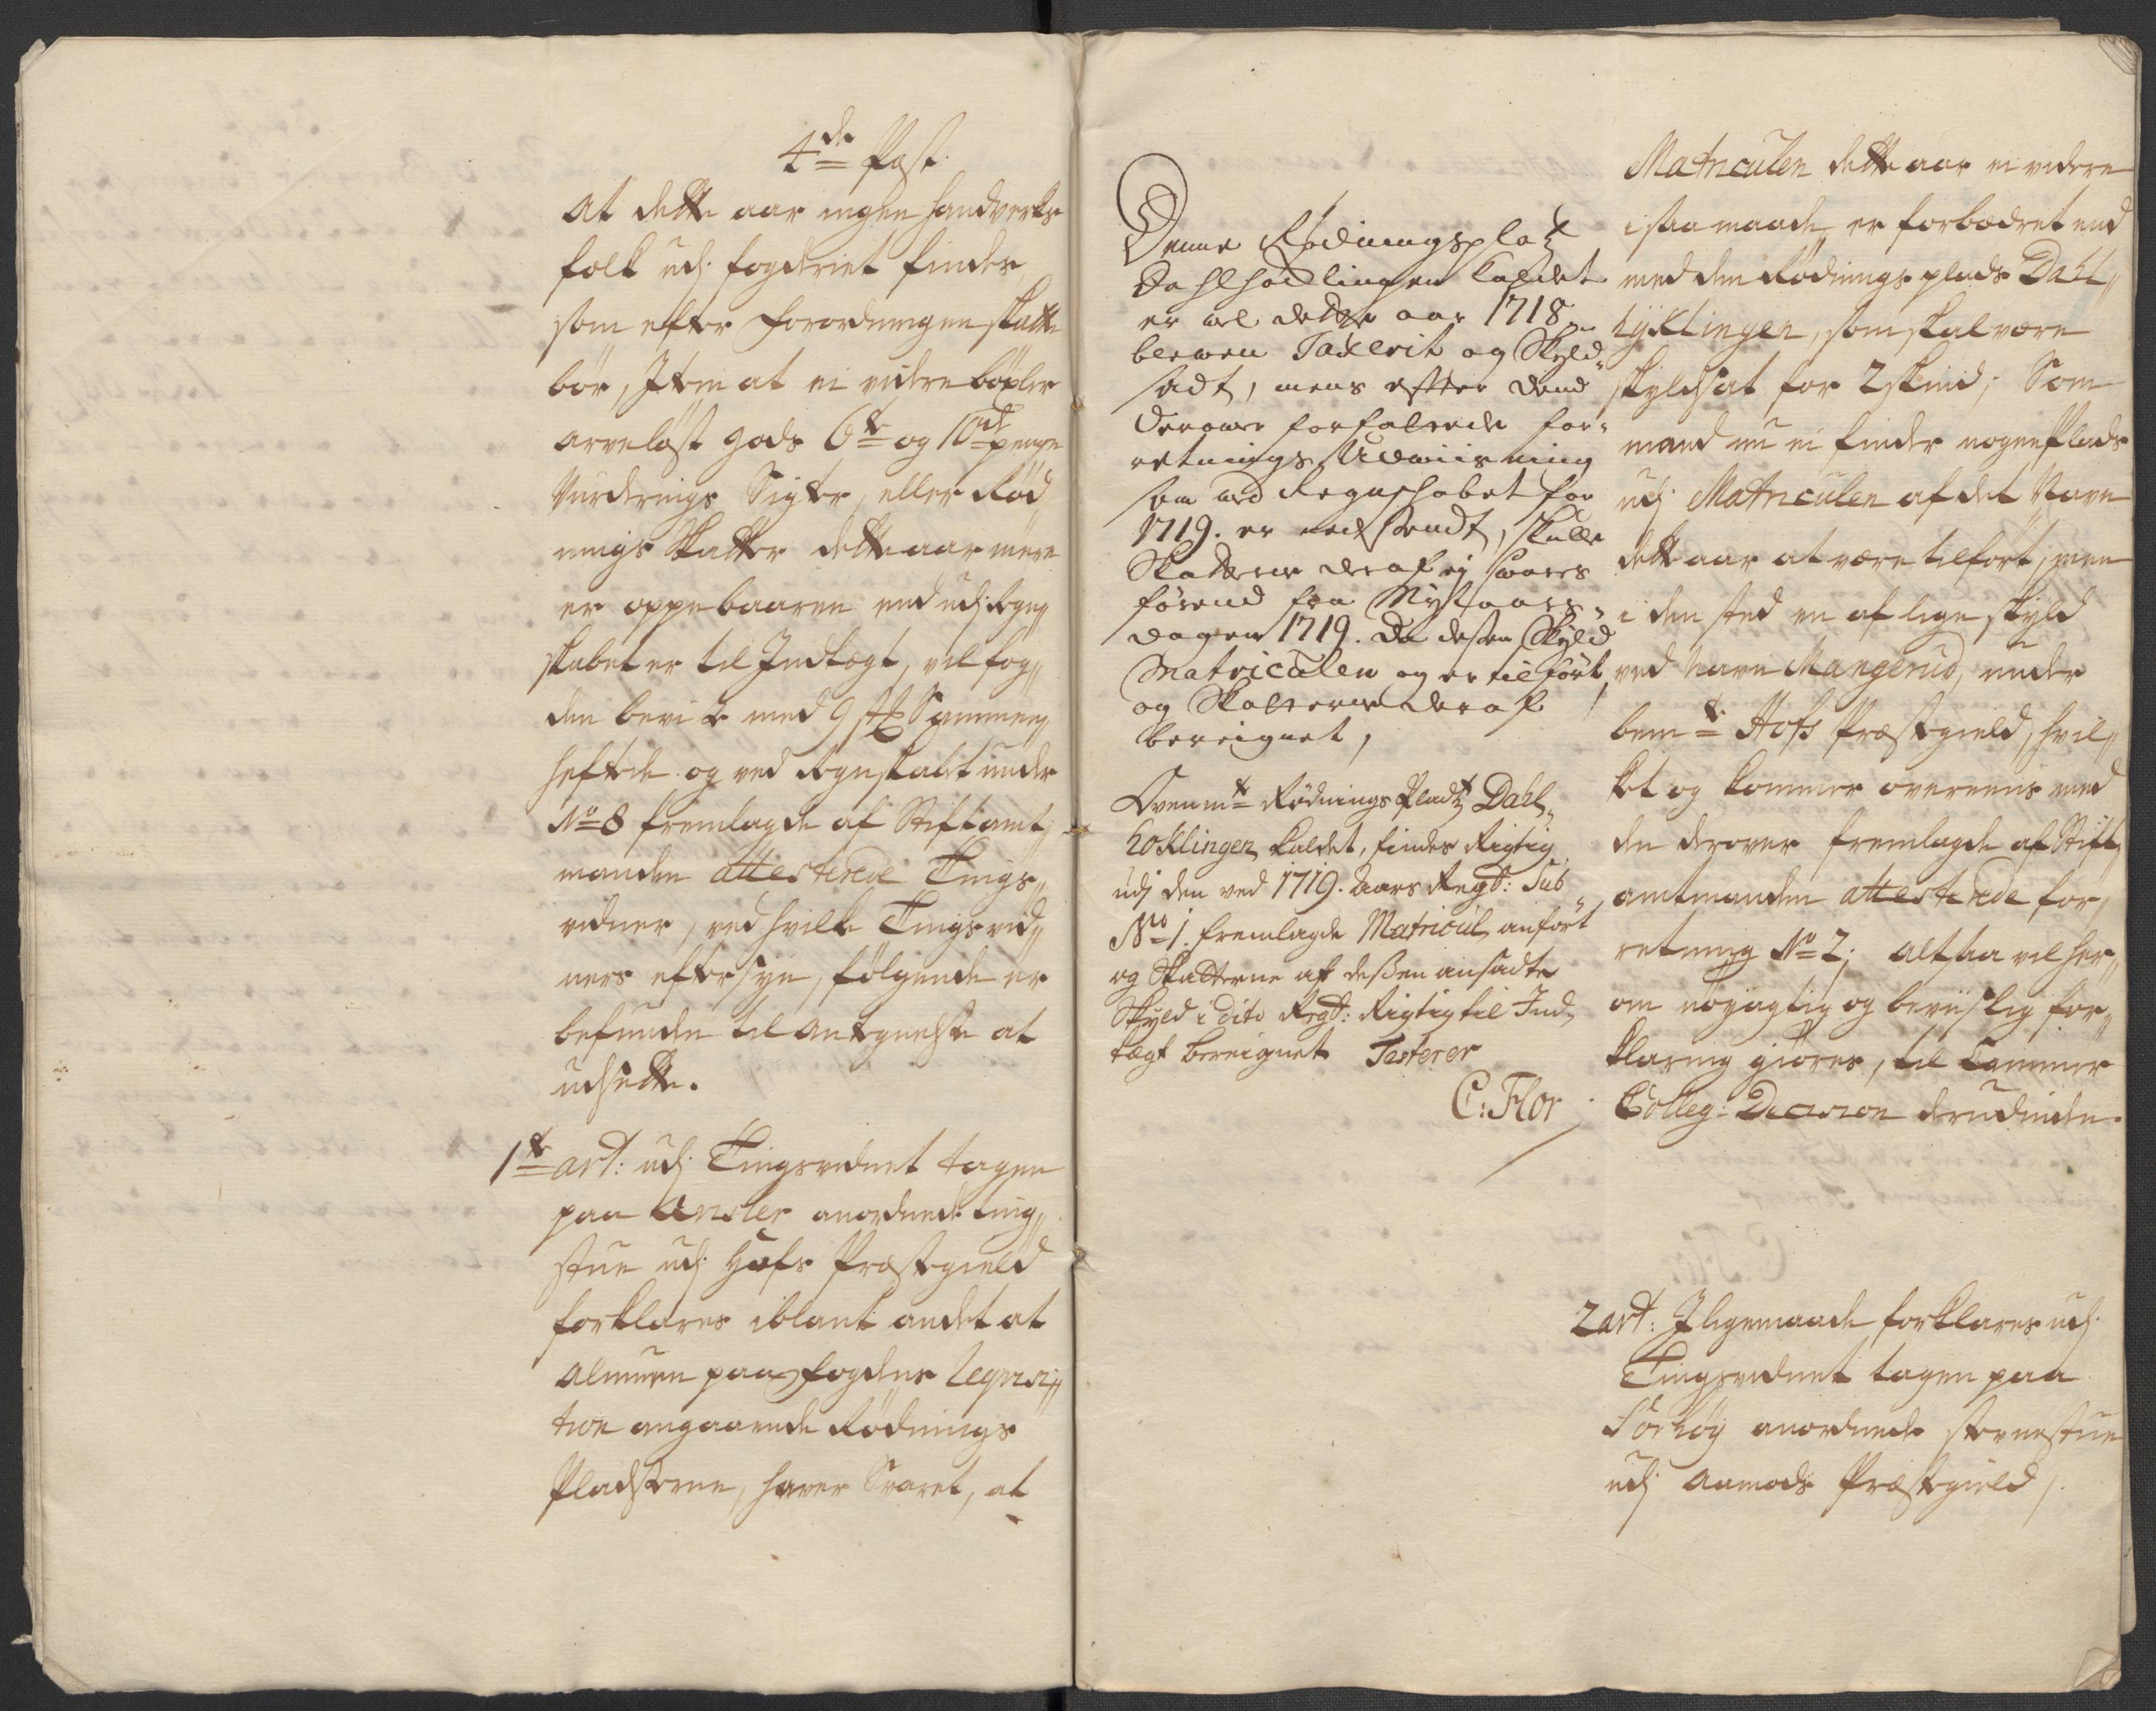 4de Post.
At dette aar ingen handverks
folk udj fogderiet findes,
som efter forordningen skatte
bör, Item at ei videre böxler
arvelöst gods 6te og 10de penge
Vurderings Sigter, eller Röd
nings Skatter dette aar mere
er oppebaaren end udj Regn„
skabet er til Indtegt, vil fog„
den bevise med 9 st Sammen„
heftede og ved Regnskabet under
No 8 fremlagde af Stiftamt„
manden attesterede Tings„
vidner, ved hvilke Tingsvid„
ners eftersyn, fölgende er
befunden til Antegnelse at
udsette.
1te art: udj Tingsvidnet tagen
paa anordnede ting„
stue udj Hofs Præstegield
forklares iblant andet at
Almuen paa fogdens Reqvisi„
tion angaaende Rödnings
Pladserne, haver Svaret, at
Denne Rödningsplatz
kaldet
er vel dette aar 1718
bleven Taxerit og Skyld„
sadt, mens efter dend
derover forfatede for„
retnings Udviisning
som ved Regnschabet for
1719. er indsendt, skulle
Skatterne deraf ej svares
förend fra Nytaars„
dagen 1719. Da dessen Skyld
Matriculen og er tilfört,
og Skatterne deraf
bereignet,
Ovenmte Rödnings Pladtz Dahl„
Koklingen kaldet, findes Rigtig
udj den ved 1719. Aars Regsk: Sub
No 1. fremlagde Matricul anfört
og Skatterne af dessen ansadte
Skyld i dito Regsk: Rigtig til Ind„
tægt bereignet Testerer
C: Flor
Matriculen dette aar ei videre
i saa maade er forbædret end
med den Rödnings plads Dahl„
kyklingen, som skal være
skyldsat for 2 skind; Som
mand nu ei finder nogen Plads
udj Matriculen af det Navn
dette aar at være tilfört, men
i den sted en af lige skyld
ved Navn Mangerud, under
bemte Hofs Præstegield, hvil„
ket og kommer overeens med
den derover fremlagde af Stift„
amtmanden attesterede for„
retning No 2; altsaa vil her„
om nöyagtig og bevislig for„
klaring giöres, til Cammer
Colleg: Decision derudinden.
2 art: I ligemaade forklares udj
Tingsvidnet tagen paa
anordnede stevnestue
udj Aamods Præstegield,